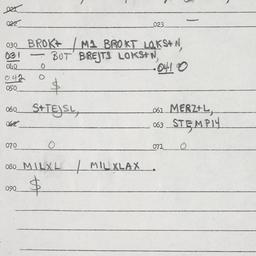 021
022 023 —
030 BROK+ / M1 BROKT LQKS+N,
031 — BUT BREJTS LOKS+N,
040 0 .041 0
042 0
050 $
060 S+TEJSL, 061 MERZ+L,
062 063 STEMPIY
070 0 071 0
080 MILXL / MILXLAX .
090 $